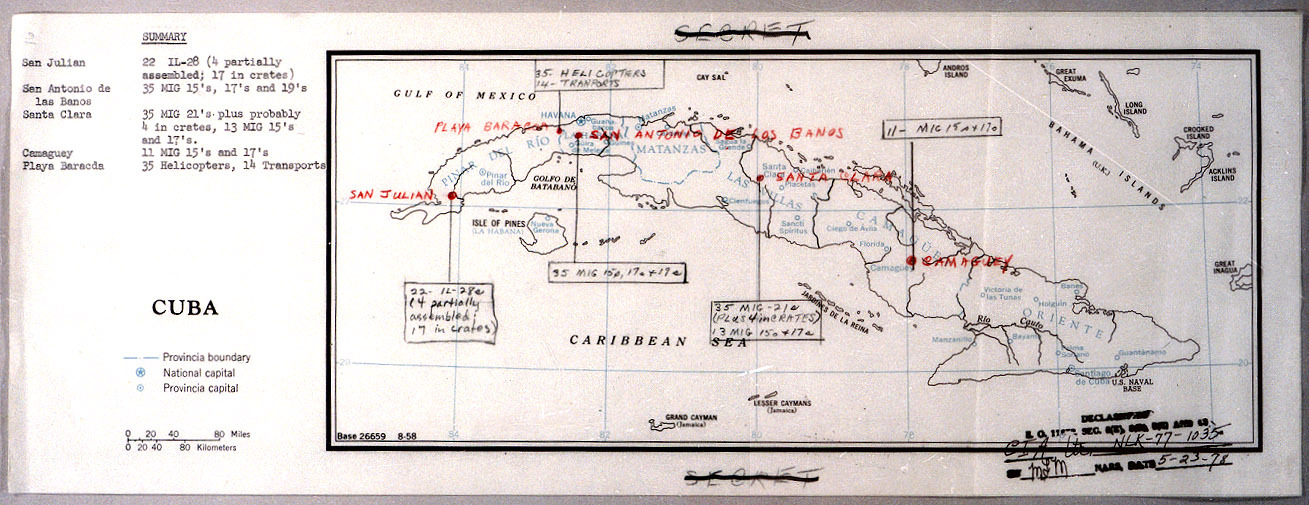 SECRET
SUMMARY
San Julian 22 IL-28 (4 partially
assembled; 17 in crates)
San Antonio de 35 MIG 15's, 17's and 19's
las Banos
Santa Clara 35 MIG 21's plus probably
4 in crates, 13 MIG 15's
and 17's.
Camaguey 11 MIG 15's and 17's
Playa Baracda 35 Helicopters, 14 Transports
CUBA
Provincia boundary
National capital
Provincia capital
0 20 40 80 Miles
0 20 40 80 Kilometers
84
80
78
74
35- HELICOPTERS
14- TRANPORTS
CAY SAL
ANDROS
ISLAND
GREAT
EXUMA
LONG
ISLAND
CROOKED
ISLAND
ACKLINS
ISLAND
BAHAMA (U.K.) ISLANDS
GREAT
INAGUA
(U.K.)
GULF OF MEXICO
PLAYA BARACOA
HAVANA
Matanzas
SAN ANTONIO DE LOS BANOS
11- MIG 15s+17s
Güira
de Melena
Güines
MATANZAS
Sagua la
Grande
PINAR DEL RÍO
Pinar
del Río
GOLFO DE
BATABANÓ
Santa
Clara
SANTA CLARA
Placetas
LAS VILLAS
SAN JULIAN
22
ISLE OF PINES
(LA HABANA)
Nueva
Gerona
Cienfuegos
Sancti
Spíritus
Ciego de Ávila
CAMAGÜEY
Florida
Camagüey
CAMAGUEY
35 MIG 15s, 17s+19s
22- IL-28s
(4 partially
assembled;
17 in crates)
35 MIG-21s
(PLUS 4 in CRATES)
13 MIG 15s+17s
JARDINES DE LA REINA
Victoria de
las Tunas
Holguín
Banes
ORIENTE
Río Cauto
Manzanillo
Bayamo
Palma
Soriano
Guantánamo
Santiago
de Cuba
U.S. NAVAL
BASE
CARIBBEAN SEA
20
LESSER CAYMANS
(Jamaica)
GRAND CAYMAN
(Jamaica)
Base 26659 8-58
84
82
80
78
DECLASSIFIED
CIA Ltr. NLK-77-1035
BY MFM NARS, DATE 5-23-78
SECRET